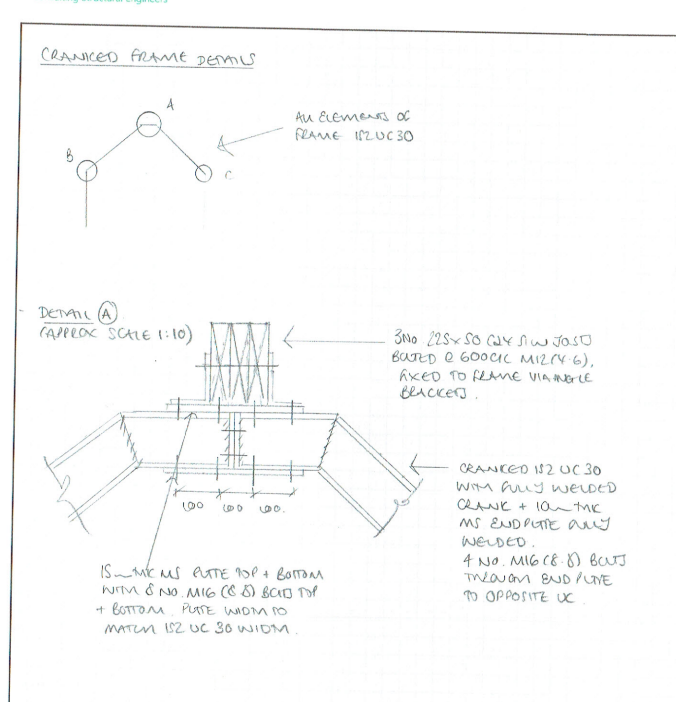 structural engineers
CRANKED FRAME DETAILS
A
B
C
ALL ELEMENTS OF
FRAME 152 UC 30
DETAIL A
(APPROX SCALE 1:10)
3No 225x50 C24 S/W JOIST
BOLTED @ 600 C/C M12 (4.6),
FIXED TO FRAME VIA ANGLE
BRACKETS.
CRANKED 152 UC 30
WITH FULLY WELDED
CRANK + 10mm THK
MS ENDPLATE FULLY
WELDED.
4 NO. M16 (8.8) BOLTS
THROUGH END PLATE
TO OPPOSITE UC
100 100 100.
15mm THK MS PLATE TOP + BOTTOM
WITH 8 NO. M16 (8.8) BOLTS TOP
+ BOTTOM. PLATE WIDTH TO
MATCH 152 UC 30 WIDTH.